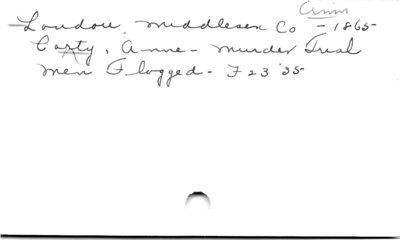 Crim
London, Middlesex Co - 1865-
Carty, Anne - Murder Trial
Men Flogged - F 23 '35